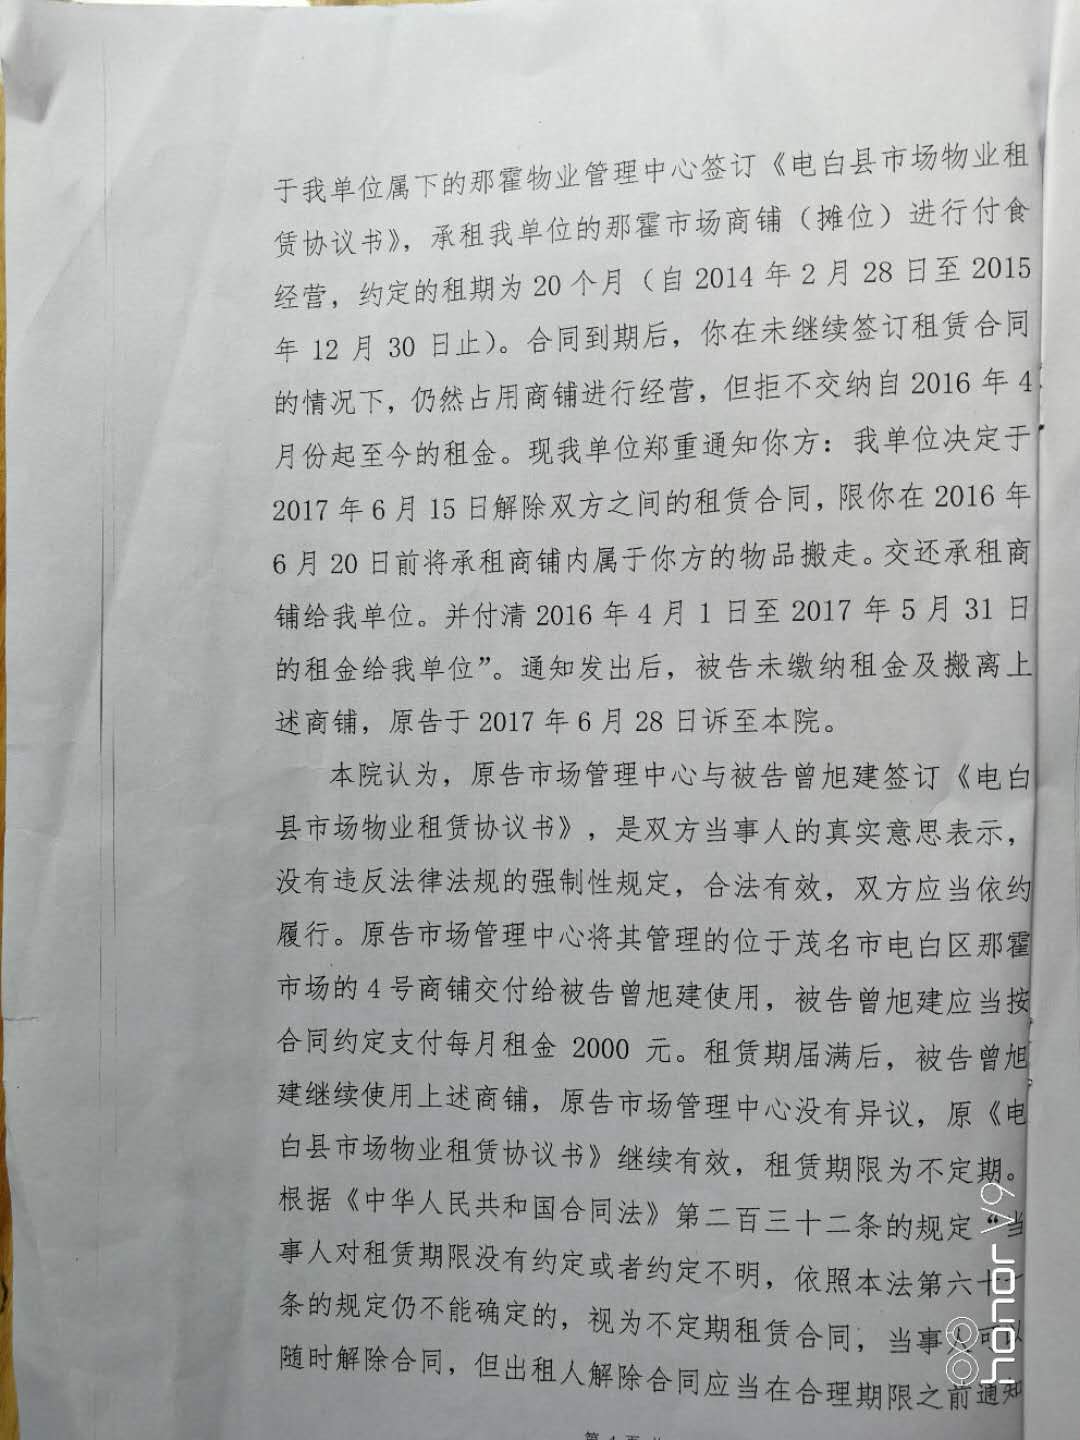 于我单位属下的那霍物业管理中心签订《电白县市场物业租
赁协议书》，承租我单位的那霍市场商铺（摊位）进行付食
经营，约定的租期为 20 个月（自 2014 年 2 月 28 日至 2015
年 12 月 30 日止）。合同到期后，你在未继续签订租赁合同
的情况下，仍然占用商铺进行经营，但拒不交纳自 2016 年 4
月份起至今的租金。现我单位郑重通知你方：我单位决定于
2017 年 6 月 15 日解除双方之间的租赁合同，限你在 2016 年
6 月 20 日前将承租商铺内属于你方的物品搬走。交还承租商
铺给我单位。并付清 2016 年 4 月 1 日至 2017 年 5 月 31 日
的租金给我单位”。通知发出后，被告未缴纳租金及搬离上
述商铺，原告于 2017 年 6 月 28 日诉至本院。
本院认为，原告市场管理中心与被告曾旭建签订《电白
县市场物业租赁协议书》，是双方当事人的真实意思表示，
没有违反法律法规的强制性规定，合法有效，双方应当依约
履行。原告市场管理中心将其管理的位于茂名市电白区那霍
市场的 4 号商铺交付给被告曾旭建使用，被告曾旭建应当按
合同约定支付每月租金 2000 元。租赁期届满后，被告曾旭
建继续使用上述商铺，原告市场管理中心没有异议，原《电
白县市场物业租赁协议书》继续有效，租赁期限为不定期。
根据《中华人民共和国合同法》第二百三十二条的规定“当
事人对租赁期限没有约定或者约定不明，依照本法第六十
条的规定仍不能确定的，视为不定期租赁合同，当事人可以
随时解除合同，但出租人解除合同应当在合理期限之前通知
honor V9